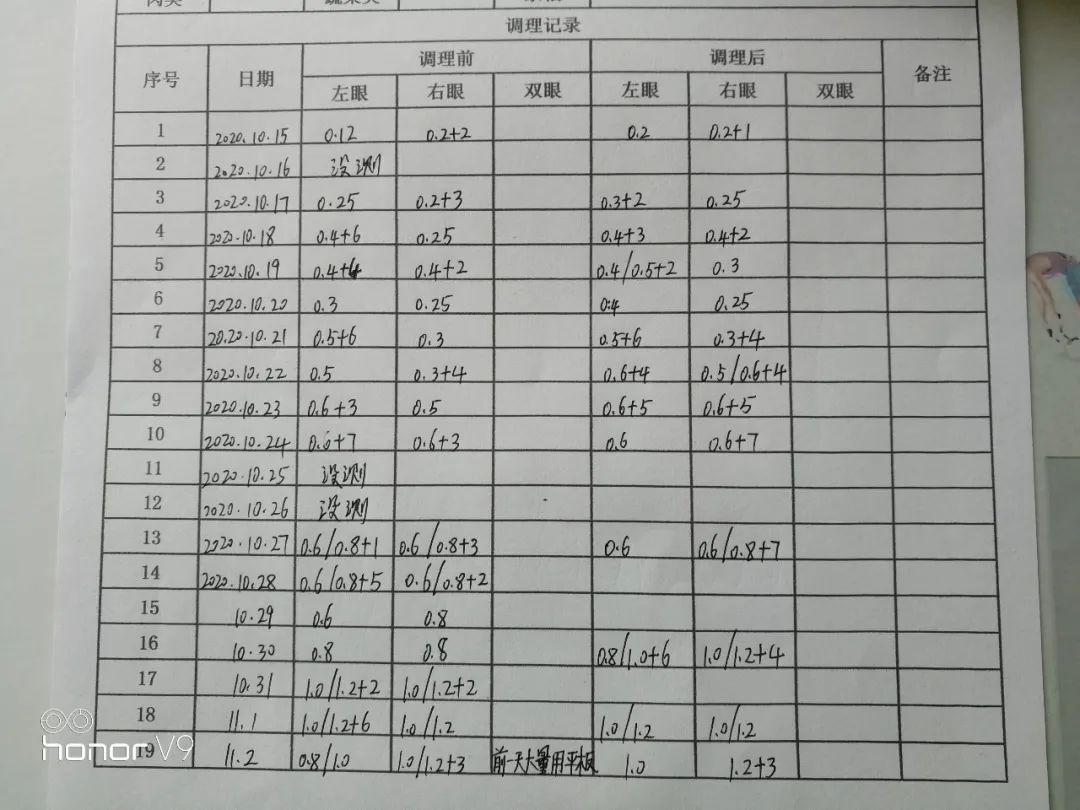 调理记录
序号 日期 调理前 调理后 备注
左眼 右眼 双眼 左眼 右眼 双眼
1 2020.10.15 0.12 0.2+2 0.2 0.2+1
2 2020.10.16 没测
3 2020.10.17 0.25 0.2+3 0.3+2 0.25
4 2020.10.18 0.4+6 0.25 0.4+3 0.4+2
5 2020.10.19 0.4+4 0.4+2 0.4/0.5+2 0.3
6 2020.10.20 0.3 0.25 0.4 0.25
7 2020.10.21 0.5+6 0.3 0.5+6 0.3+4
8 2020.10.22 0.5 0.3+4 0.6+4 0.5/0.6+4
9 2020.10.23 0.6+3 0.5 0.6+5 0.6+5
10 2020.10.24 0.6+7 0.6+3 0.6 0.6+7
11 2020.10.25 没测
12 2020.10.26 没测
13 2020.10.27 0.6/0.8+1 0.6/0.8+3 0.6 0.6/0.8+7
14 2020.10.28 0.6/0.8+5 0.6/0.8+2
15 10.29 0.6 0.8
16 10.30 0.8 0.8 0.8/1.0+6 1.0/1.2+4
17 10.31 1.0/1.2+2 1.0/1.2+2
18 11.1 1.0/1.2+6 1.0/1.2 1.0/1.2 1.0/1.2
19 11.2 0.8/1.0 1.0/1.2+3 前一天大量用平板 1.0 1.2+3
honor V9